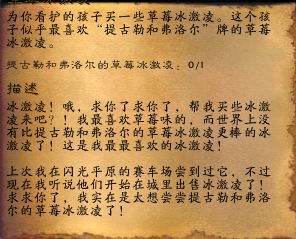 为你看护的孩子买一些草莓冰激凌。这个孩
子似乎最喜欢“提古勒和弗洛尔”牌的草莓
冰激凌。
提古勒和弗洛尔的草莓冰激凌：0/1
描述
冰激凌！哦，求你了求你了，帮我买些冰激
凌来吧？！我最喜欢草莓味的，而世界上没
有比提古勒和弗洛尔的草莓冰激凌更棒的冰
激凌了！这是我最最最喜欢的冰激凌！
上次我在闪光平原的赛车场尝到过它，不过
现在我听说他们开始在城里出售冰激凌了！
求求你了，我实在是太想尝尝提古勒和弗洛
尔的草莓冰激凌了！